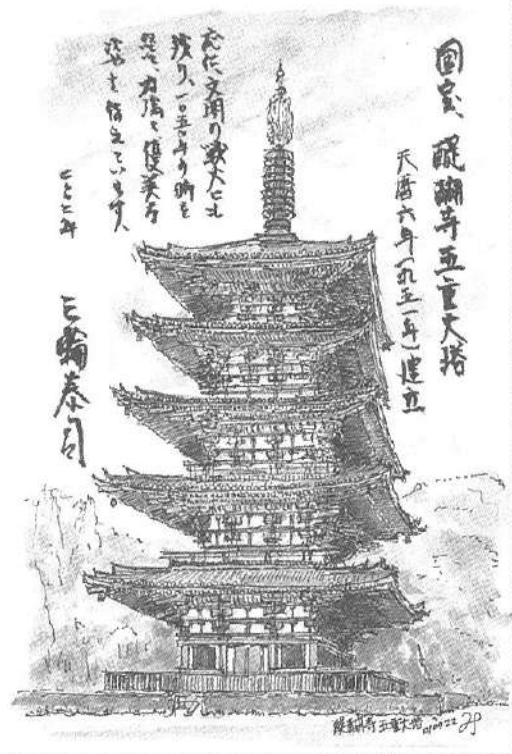 国宝、醍醐寺五重大塔
天暦六年(九五一年)建立
応仁、文明の戦火にも
残り、一〇五〇年の時を
力強く優美な
姿を伝えています。
三輪泰司
醍醐寺五重大塔